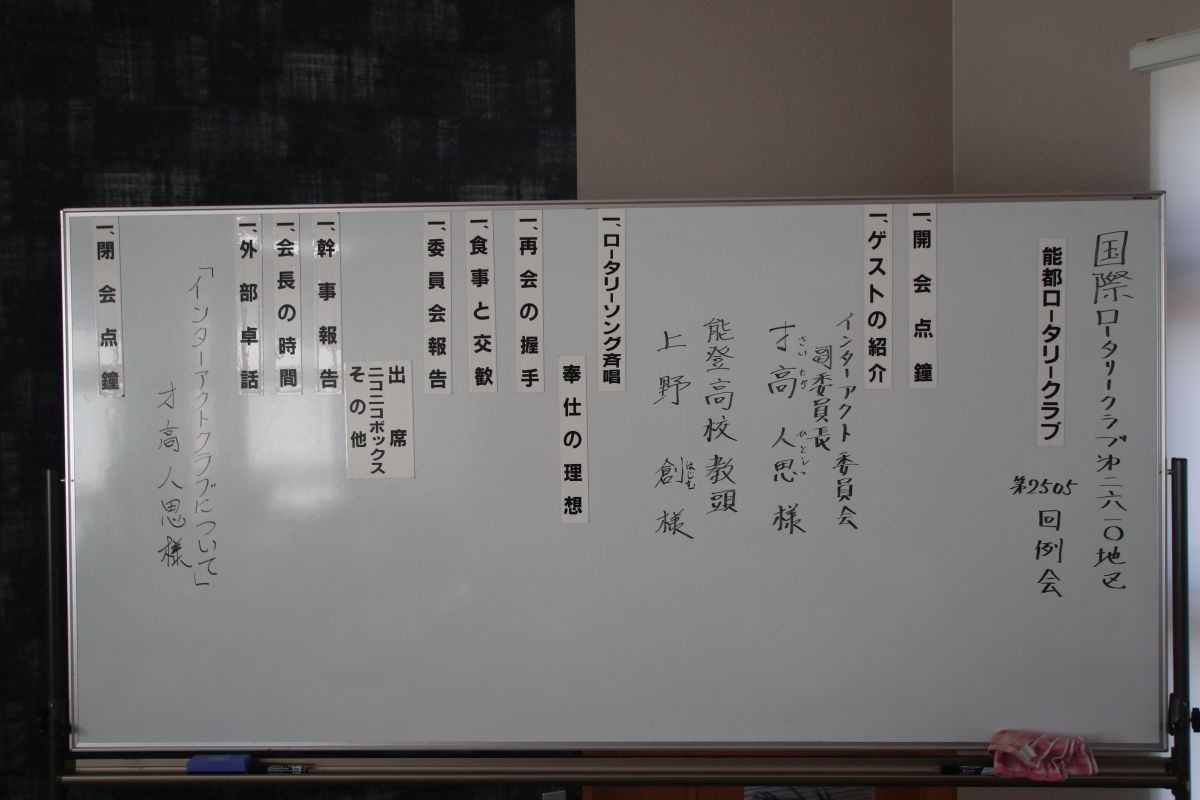 国際ロータリークラブ第二六一〇地区
能都ロータリークラブ
第2505回例会
一、開会点鐘
一、ゲストの紹介
インターアクト委員会
副委員長
才高人思様
さいたか ひとしい
能登高校教頭
上野創様
はじむ
一、ロータリーソング斉唱
奉仕の理想
一、再会の握手
一、食事と交歓
一、委員会報告
出席
ニコニコボックス
その他
一、幹事報告
一、会長の時間
一、外部卓話
「インターアクトクラブについて」
才高人思様
一、閉会点鐘